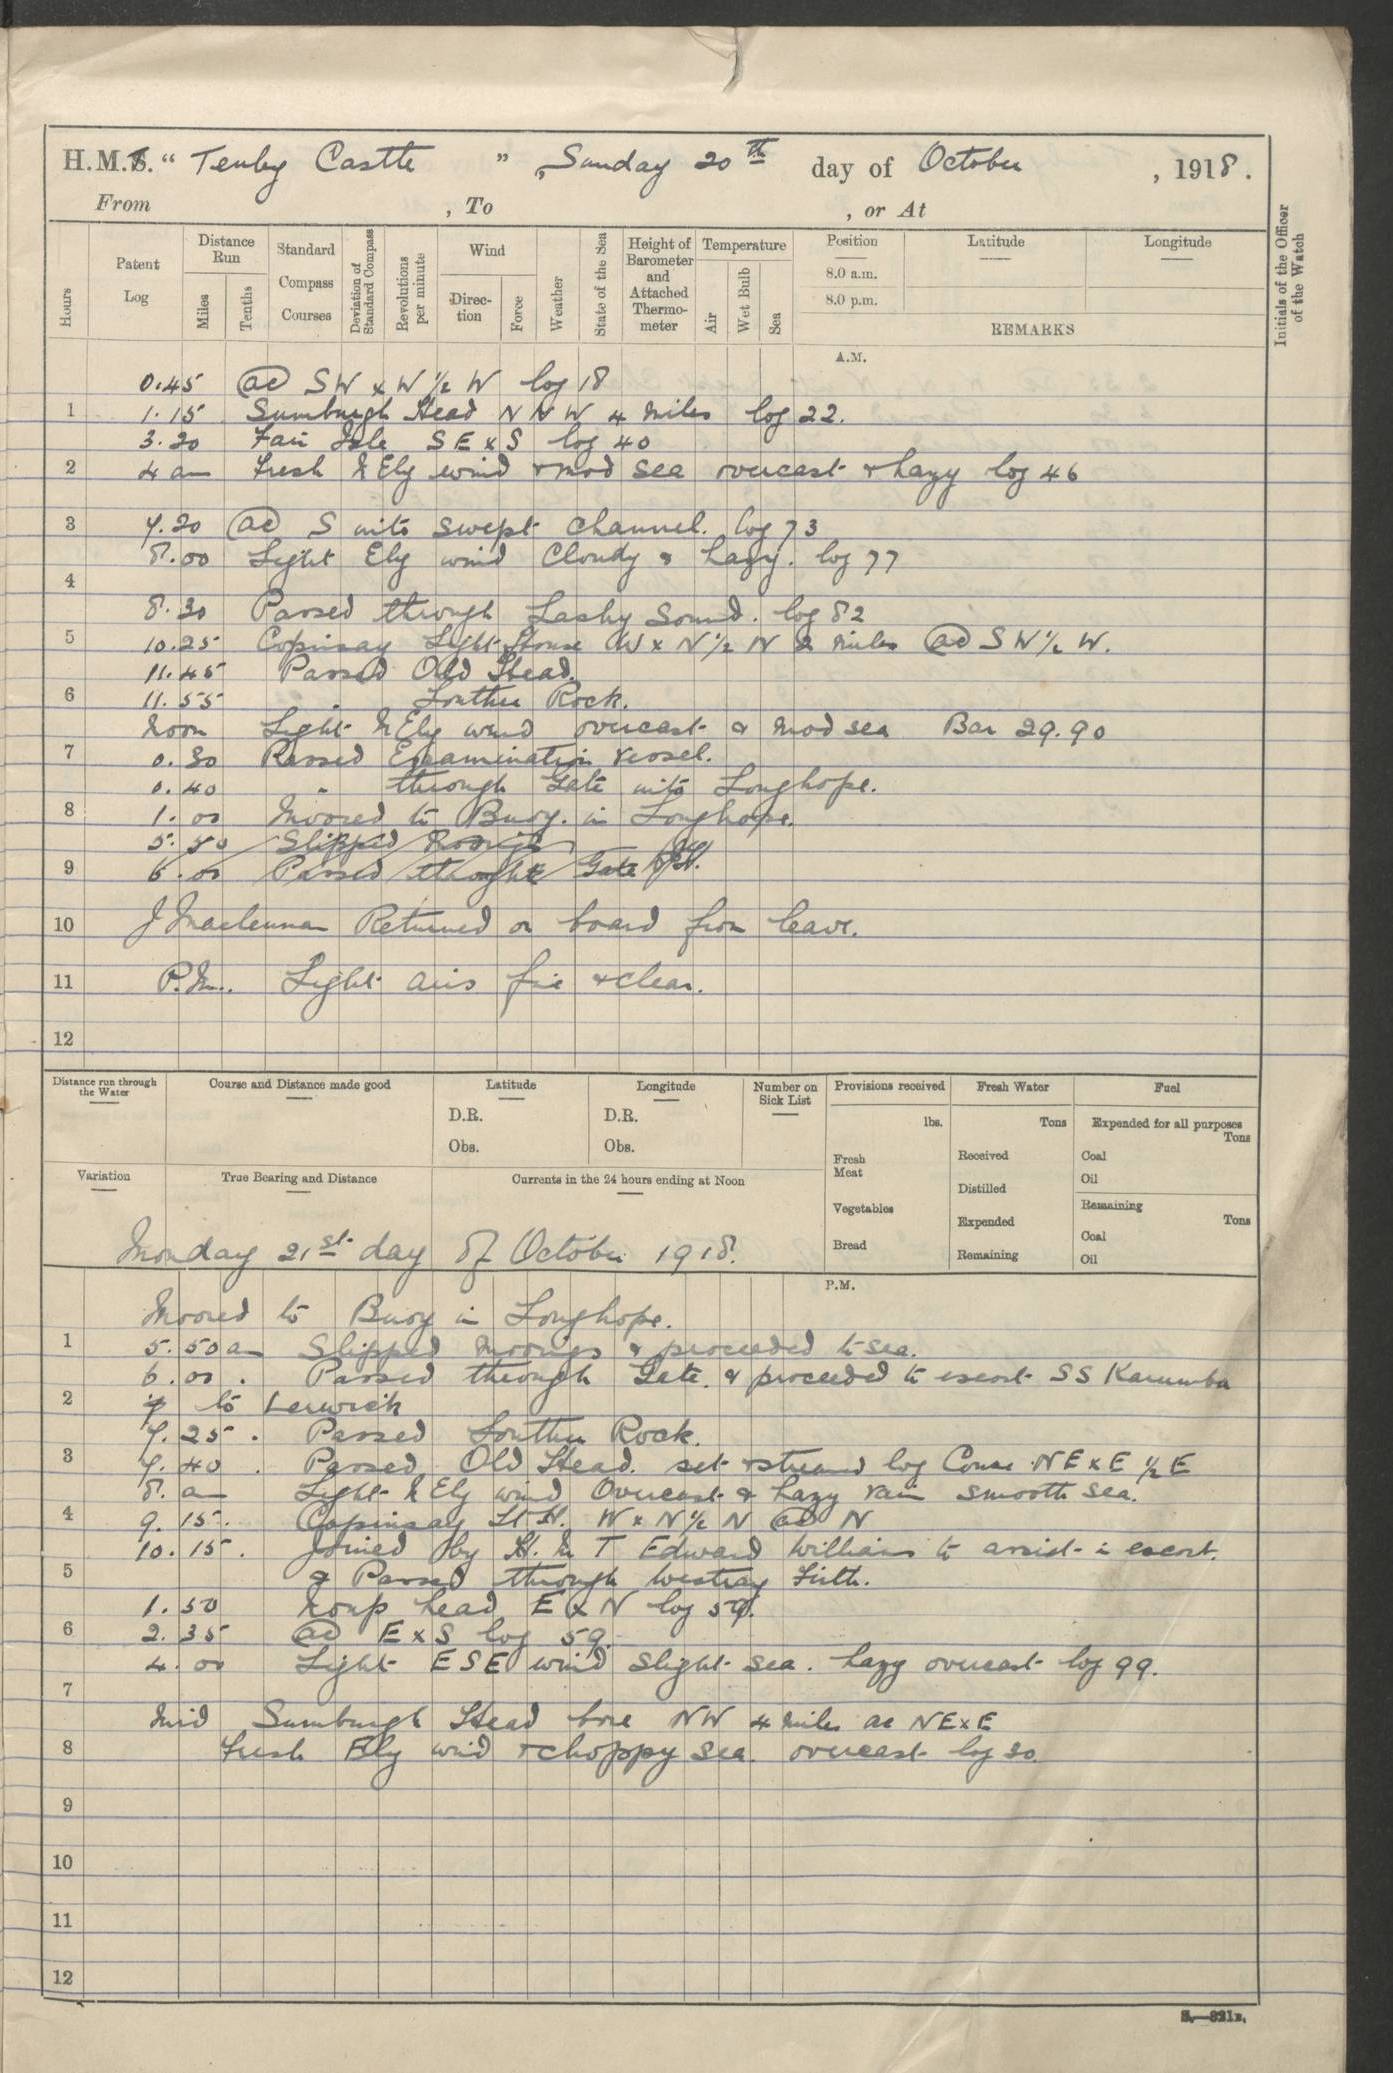 H.M.T. " Tenby Castle " , Sunday 20th day of October , 1918.
From , To , or At
Hours
Patent Log
Distance Run
Miles
Tenths
Standard Compass Courses
Deviation of Standard Compass
Revolutions per minute
Wind
Direction
Force
Weather
State of the Sea
Height of Barometer and Attached Thermometer
Temperature
Air
Wet Bulb
Sea
Position
8.0 a.m.
8.0 p.m.
Latitude
Longitude
REMARKS
Initials of the Officer of the Watch
A.M.
0.45 ac SW x W ½ W log 18
1 1.15 Sumburgh Head NNW 4 miles log 22.
3.20 Fair Isle SE x S log 40
2 4 am Fresh NEly wind & mod sea overcast & hazy log 46
3 7.20 ac S into swept channel. log 73
8.00 Light Ely wind Cloudy & hazy. log 77
4
8.30 Passed through Lashy Sound. log 82
5 10.25 Copinsay Light House W x N ½ N 2 miles ac SW ½ W.
11.45 Passed Old Head.
6 11.55 " Louther Rock.
Noon Light NEly wind overcast & mod sea Bar 29.90
7 0.30 Passed Examination vessel.
0.40 " through Gate into Longhope.
8 1.00 Moored to Buoy. in Longhope.
5.50 Slipped Moorings
9 6.00 Passed through Gate
10 J Maclennan Returned on board from leave.
11 P.M. Light airs fine & clear.
12
Distance run through the Water
Course and Distance made good
Latitude
D.R.
Obs.
Longitude
D.R.
Obs.
Number on Sick List
Provisions received
lbs.
Fresh Meat
Vegetables
Bread
Fresh Water
Tons
Received
Distilled
Expended
Remaining
Fuel
Expended for all purposes
Tons
Coal
Oil
Remaining
Tons
Coal
Oil
Variation
True Bearing and Distance
Currents in the 24 hours ending at Noon
Monday 21st day of October 1918.
P.M.
Moored to Buoy in Longhope.
1 5.50 am Slipped moorings & proceeded to sea.
6.00 . Passed through Gate. & proceeded to escort SS Karumba
2 to Lerwick
7.25 . Passed Louther Rock.
3 7.40 . Passed Old Head. set & streamed log Course NE x E ½ E
8. am Light NEly wind Overcast & hazy rain smooth sea.
4 9.15. Copinsay Lt H. W x N ½ N ac N
10.15. Joined by H.M T Edward Williams to assist in escort.
5 & Passed through Westray Firth.
1.50 Noup head E x N log 59.
6 2.35 ac E x S log 59.
4.00 Light ESE wind slight sea. hazy overcast log 99.
7
Mid Sumburgh Head bore NW 4 miles ac NE x E
8 Fresh Ely wind & choppy sea. overcast log 30.
9
10
11
12
S.—321B.